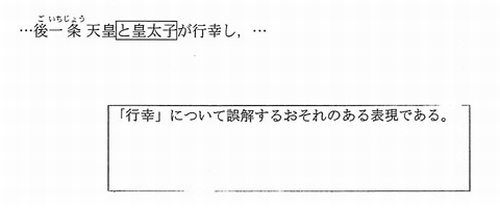 …後一条天皇と皇太子が行幸し，…
ごいちじょう
「行幸」について誤解するおそれのある表現である。